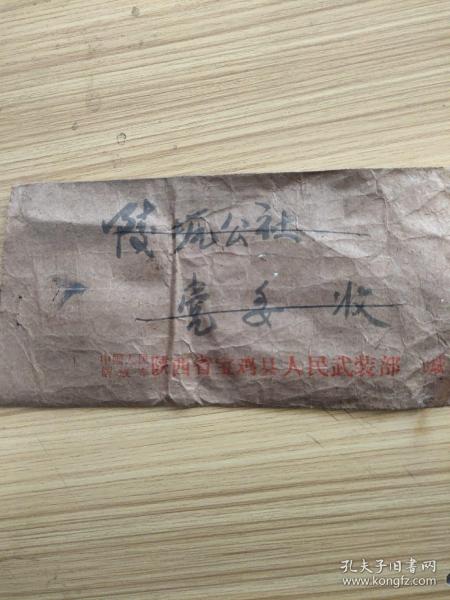 陵塬公社
党委 收
中国人民
解放军
陕西省宝鸡县人民武装部 缄
孔夫子旧书网
www.kongfz.com